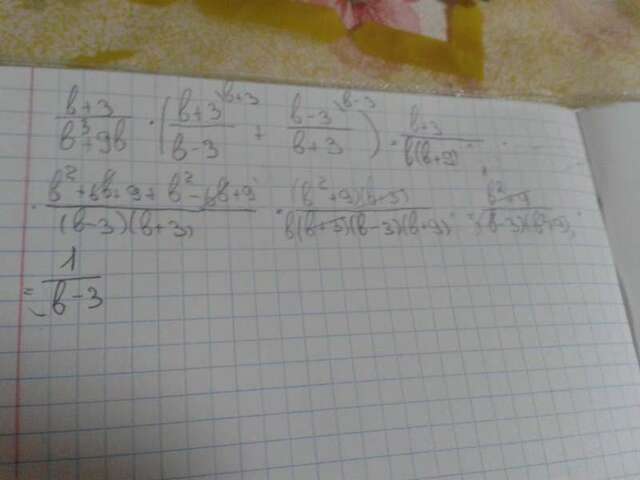 (b+3)/(b³+9b) · ((b+3)/(b-3) \b+3 + (b-3)/(b+3) \b-3) · (b+3)/(b(b+9)) ·
· (b²+6b+9+b²-6b+9)/((b-3)(b+3)) · ((b²+9)(b+3))/(b(b+3)(b-3)(b+9)) · (b²+9)/((b-3)(b²+9)) =
= 1/(b-3)